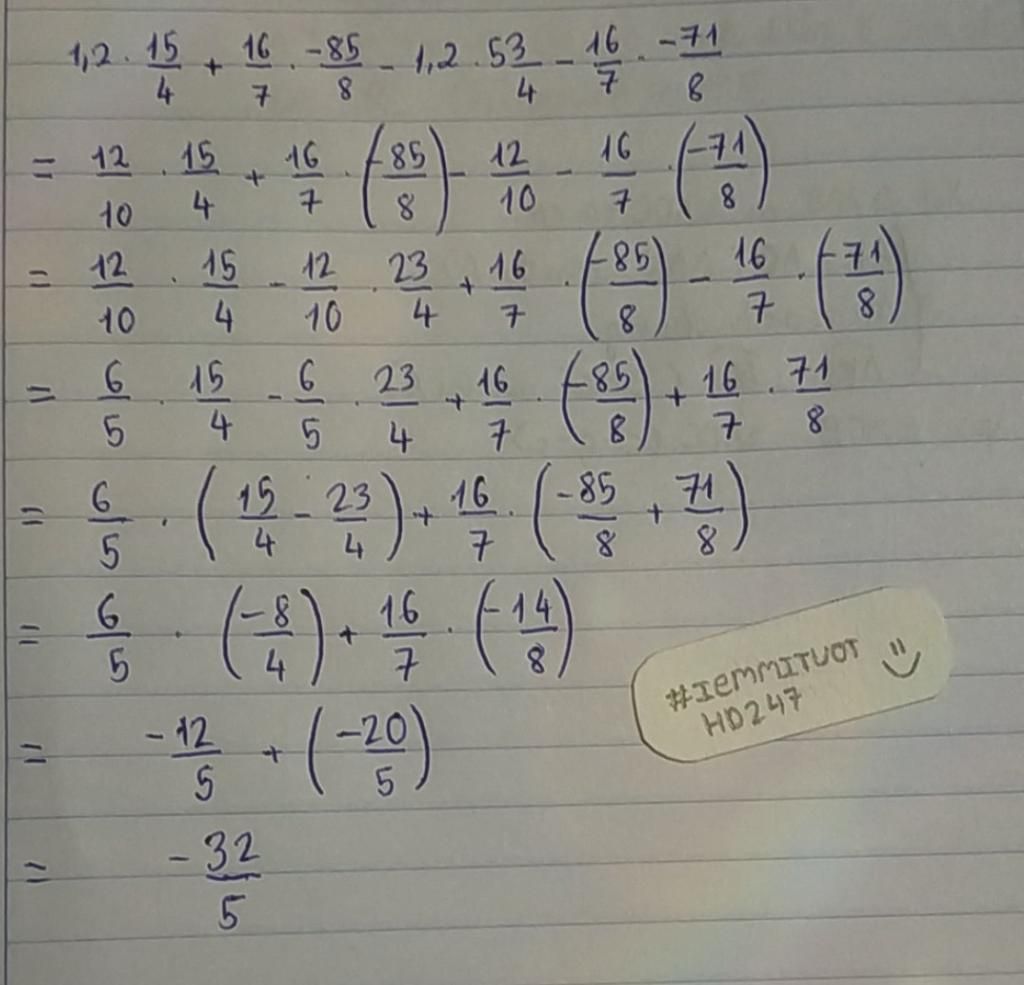 1,2 . 15/4 + 16/7 . -85/8 - 1,2 . 53/4 - 16/7 . -71/8
= 12/10 . 15/4 + 16/7 . (-85/8) - 12/10 - 16/7 . (-71/8)
= 12/10 . 15/4 - 12/10 . 23/4 + 16/7 . (-85/8) - 16/7 . (-71/8)
= 6/5 . 15/4 - 6/5 . 23/4 + 16/7 . (-85/8) + 16/7 . 71/8
= 6/5 . (15/4 - 23/4) + 16/7 . (-85/8 + 71/8)
= 6/5 . (-8/4) + 16/7 . (-14/8)
#IEMMITUOT
HD247
= -12/5 + (-20/5)
= -32/5